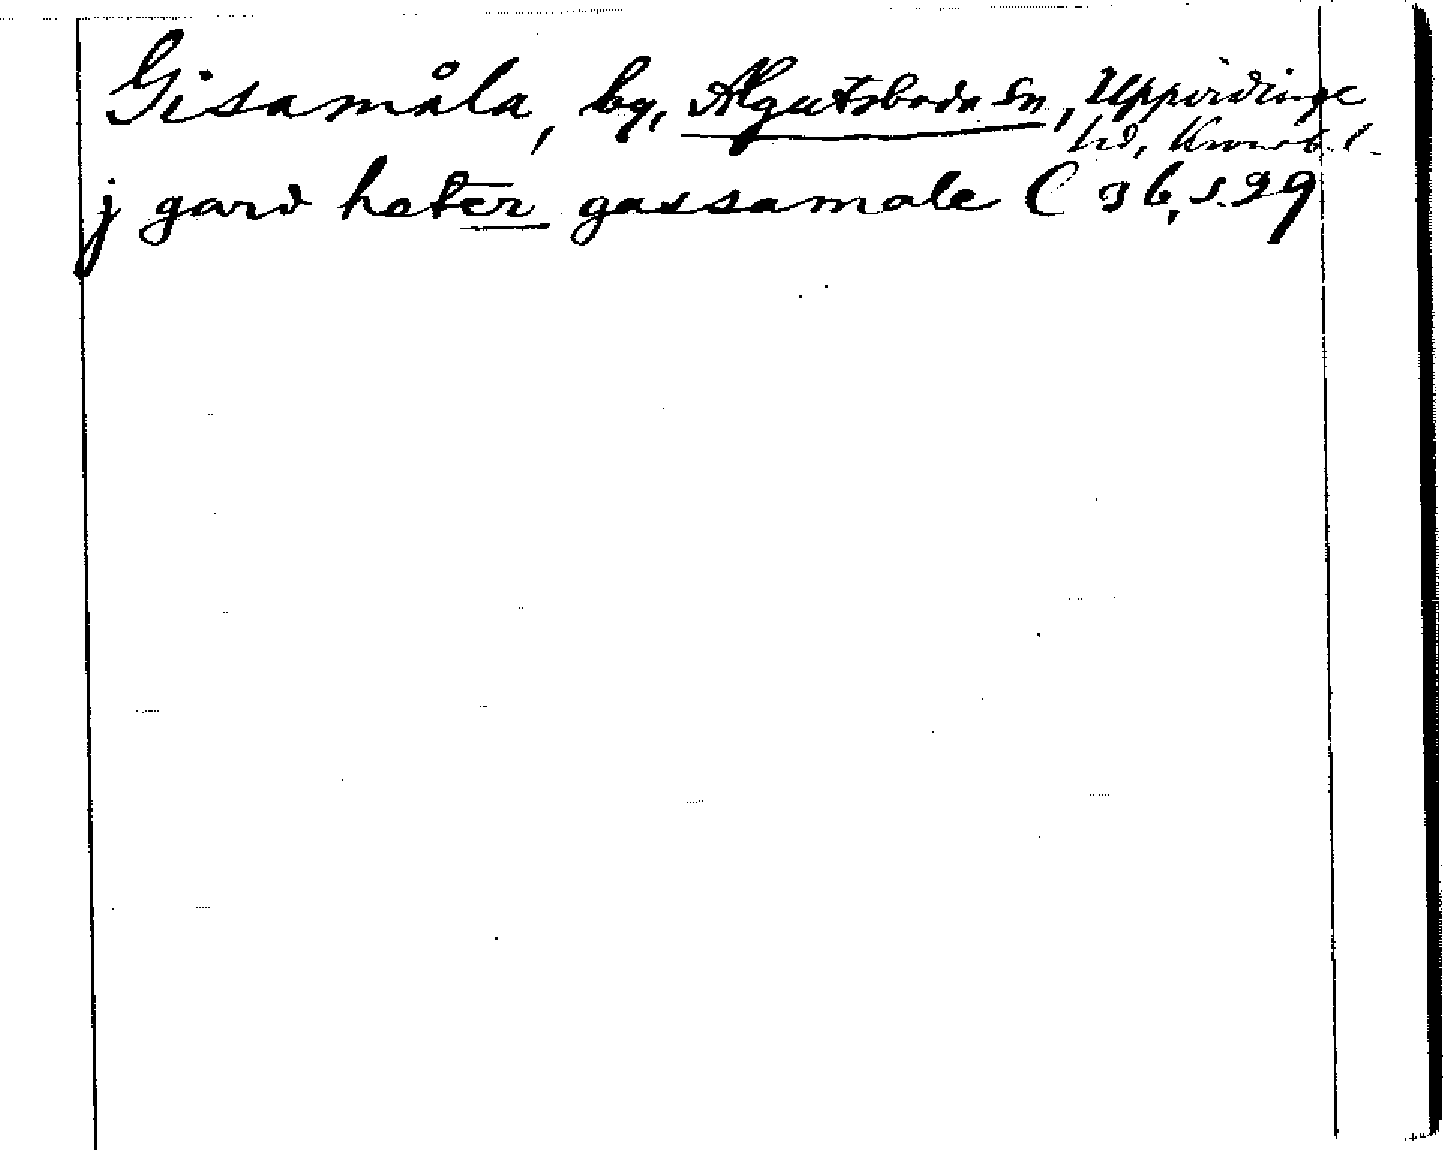 Gisamåla, by, Algutsboda sn, Uppvidinge
hd, Kronob. l.
j gard heter gassamale C 36, s. 29